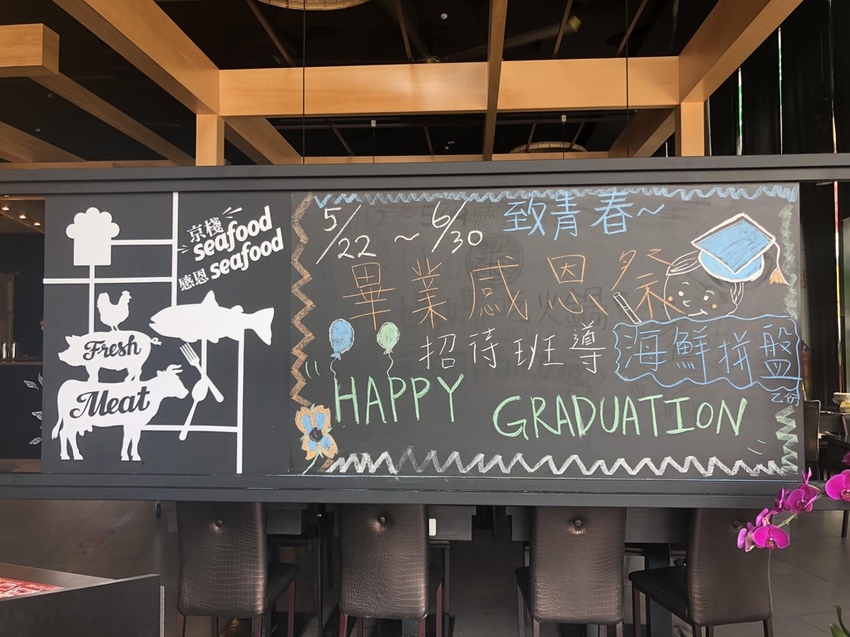 京棧
seafood
感恩 seafood
Fresh
Meat
5/22 ~ 6/30 致青春~
畢業感恩祭
招待班導 海鮮拼盤
乙份
HAPPY GRADUATION